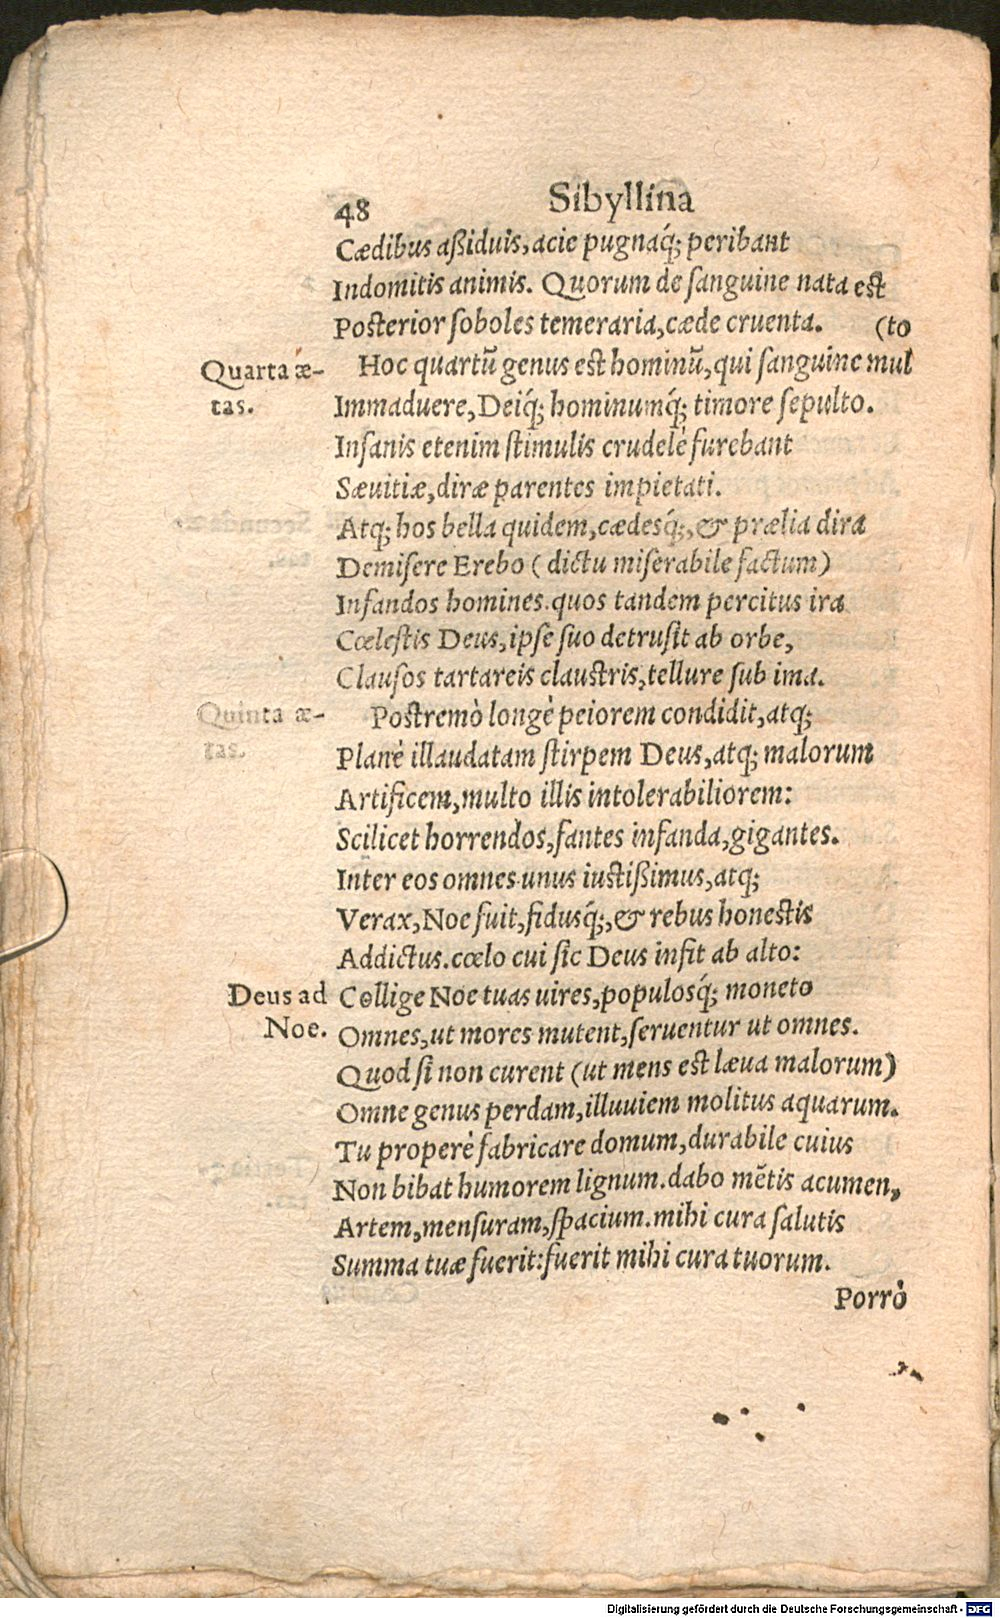 48 Sibyllina
Cædibus aßiduis, acie pugnaq́; peribant
Indomitis animis. Quorum de ſanguine nata est
Posterior ſoboles temeraria, cæde cruenta. (to
Quarta æ-
tas.
Hoc quartũ genus est hominũ, qui ſanguine mul
Immaduere, Deiq́; hominumq́; timore ſepulto.
Inſanis etenim ſtimulis crudelè furebant
Sæuitiæ, diræ parentes impietati.
Atq; hos bella quidem, cædesq́;, & prælia dira
Demiſere Erebo (dictu miſerabile factum)
Infandos homines. quos tandem percitus ira
Cœleſtis Deus, ipſe ſuo detruſit ab orbe,
Clauſos tartareis claustris, tellure ſub ima.
Quinta æ-
tas.
Postremò longè peiorem condidit, atq;
Planè illaudatam ſtirpem Deus, atq; malorum
Artificem, multo illis intolerabiliorem:
Scilicet horrendos, fantes infanda, gigantes.
Inter eos omnes unus iustißimus, atq;
Verax, Noe fuit, fidusq́;, & rebus honestis
Addictus. cœlo cui ſic Deus inſit ab alto:
Deus ad
Noe.
Collige Noe tuas uires, populosq́; moneto
Omnes, ut mores mutent, ſeruentur ut omnes.
Quod ſi non curent (ut mens est læua malorum)
Omne genus perdam, illuuiem molitus aquarum.
Tu properè fabricare domum, durabile cuius
Non bibat humorem lignum. dabo mẽtis acumen,
Artem, menſuram, ſpacium. mihi cura ſalutis
Summa tuæ fuerit: fuerit mihi cura tuorum.
Porrò
Digitalisierung gefördert durch die Deutsche Forschungsgemeinschaft - DFG